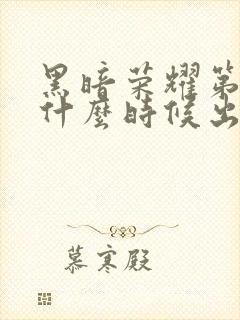 黑暗荣耀第
什麼時候出
慕寒殿